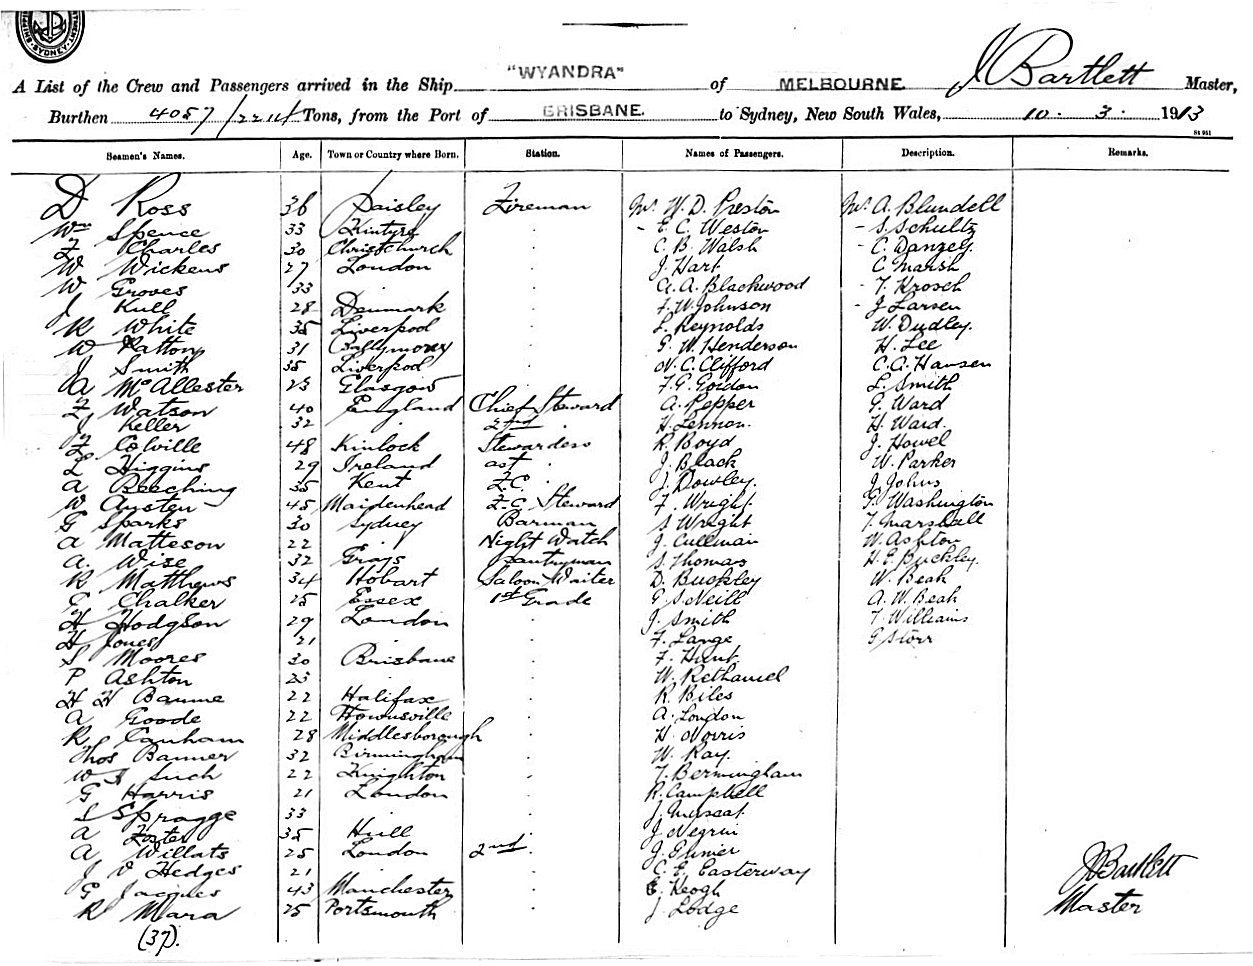 SYDNEY
"WYANDRA"
A List of the Crew and Passengers arrived in the Ship of MELBOURNE. J Bartlett Master,
Burthen 4057/2214 Tons, from the Port of BRISBANE. to Sydney, New South Wales, 10. 3. 1913
Seamen's Names. Age. Town or Country where Born. Station. Names of Passengers. Description. Remarks.
D Ross 36 Paisley Fireman Mr. W. D. Preston Mr. A. Blundell
Wm Spence 33 Kintyre - E. C. Weston - S. Schultz
F Charles 30 Christchurch C. B. Walsh - C. Danzey
W Wickens 27 London J. Hart C Marsh
W Groves 33 . A. A. Blackwood - T. Krosch
J Kull 28 Denmark F. W. Johnson - J Larsen
R White 35 Liverpool L. Reynolds W. Dudley.
W Patton 31 Ballymoney G. W. Henderson H. Lee
J Smith 35 Liverpool N. C. Clifford C. A. Hansen
A McAllester 23 Glasgow F. G. Gordon L. Smith
F Watson 40 England Chief Steward A. Pepper G. Ward
J Keller 32 . 2nd . H. Lennon. H. Ward.
F Colville 48 Kinlock Stewardess R. Boyd J. Howel
L Higgins 29 Ireland ast . J. Black W. Parker
A Beeching 35 Kent F.C. J. Dowley. J Johns
W Austen 45 Maidenhead F.C. Steward F. Wright G. Washington
G Sparks 30 Sydney Barman S Wright T. Marshall
A Matteson 22 . Night Watch J. Cullinan W. Ashton
A. Wise 32 Grays Pantryman S. Thomas H. E. Buckley.
R Matthews 34 Hobart Saloon Waiter D. Buckley W. Beak
G Chalker 25 Essex 1st Grade G S. Neill A. W. Beak
H Hodgson 29 London . J. Smith T. Williams
H Jones 21 . . F. Lange G Storr
S Moores 30 Brisbane . F. Hunt
P Ashton 23 . . W. Rethamel
H H Baume 22 Halifax . R. Biles
A Goode 22 Townsville . A. London
R. Canham 28 Middlesborough H. Norris
Thos Banner 32 Birmingham . W. Ray.
W H Such 22 Knighton . T. Bermingham
G Harris 21 London . R. Campbell
S Spragge 33 . . J. Muscat.
A Foster 35 Hull . J Negrin
A Willats 25 London 2nd . J.
J V Hedges 21 . . C. E. Easterway
G Jacques 43 Manchester . E. Keogh J Bartlett
R Mara 25 Portsmouth . J. Lodge Master
(37).